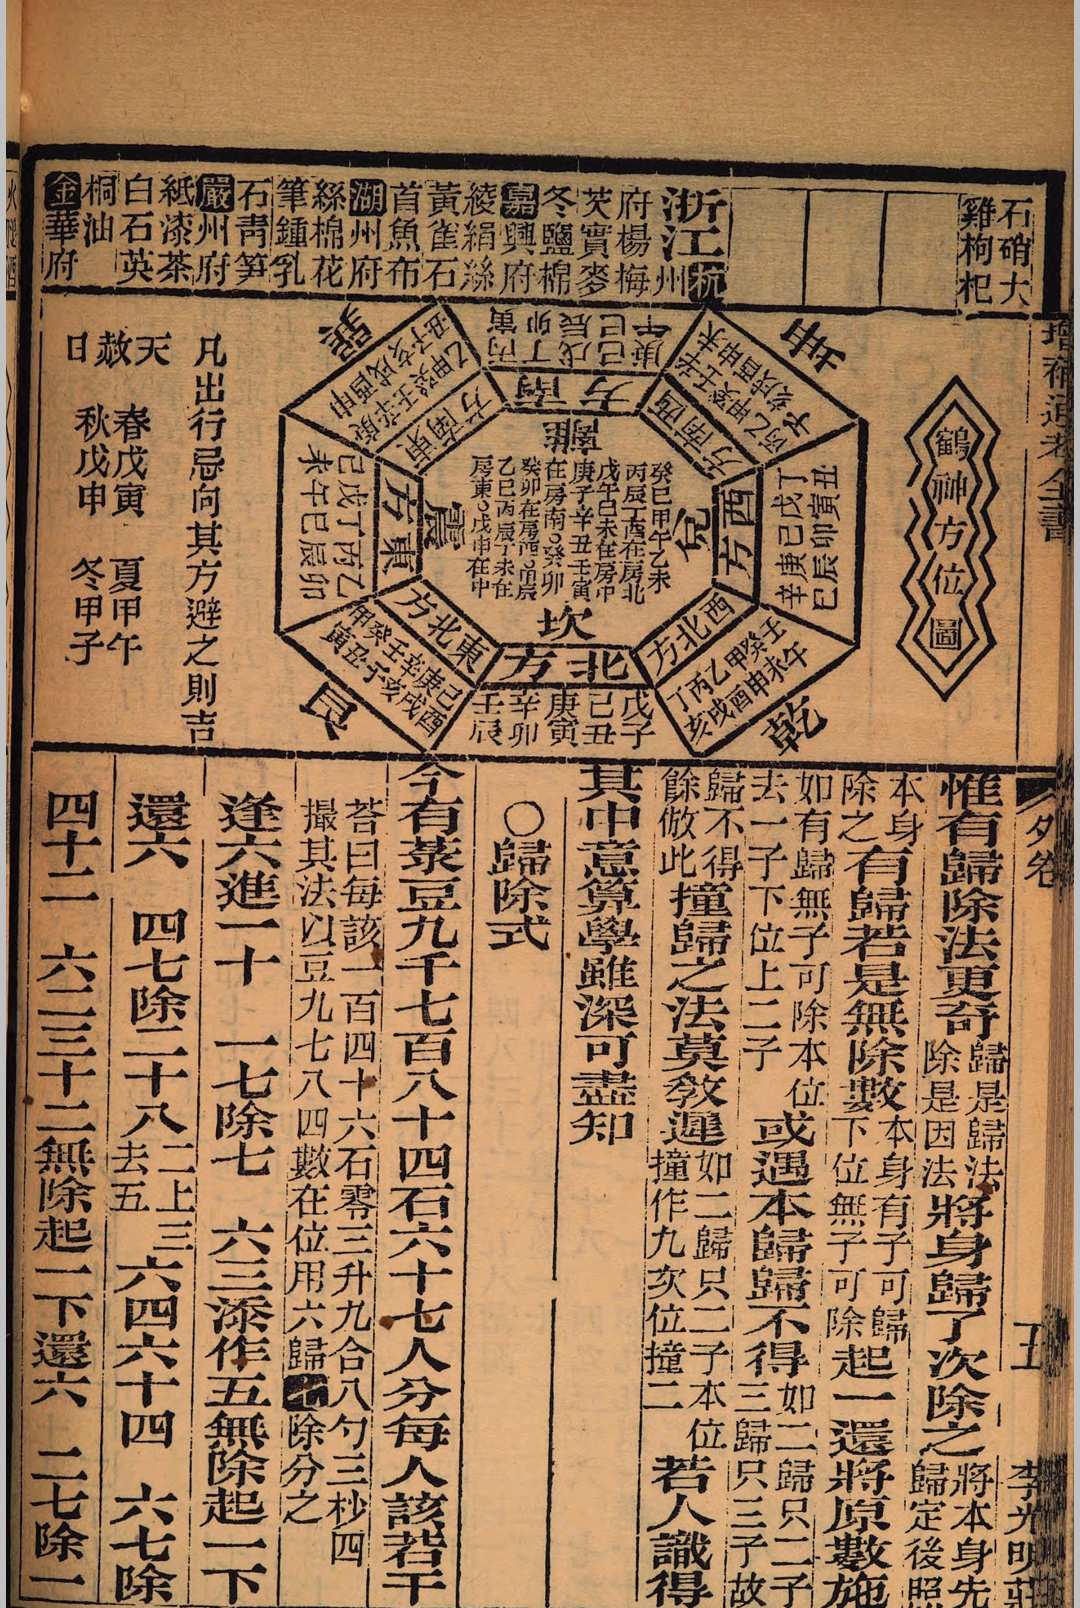 石硝大
雞枸杞
浙江杭州
府楊梅
芡實麥
冬鹽棉
嘉興府
綾絹絲
黃雀石
首魚布
湖州府
絲棉花
筆鍾乳
石青筍
嚴州府
紙漆茶
白石英
桐油
金華府
增補通考全書
外卷
五
李光明莊
鶴神方位圖
坤
巽
艮
乾
離
震
兌
坎
南方
丙丁戊己庚
寅卯辰巳午
西南方
東南方
東方
乙丙丁戊己
卯辰巳午未
西方
丁戊己庚辛
丑寅卯辰巳
東北方
己庚辛壬癸甲
酉戌亥子丑寅
北方
戊己庚辛壬
子丑寅卯辰
西北方
壬癸甲乙丙丁
午未申酉戌亥
癸巳甲午乙未
丙辰丁巳在房北
戊午己未在房中
庚子辛丑壬寅
在房南○癸卯
凡出行忌向其方避之則吉
天赦日
春戊寅 夏甲午
秋戊申 冬甲子
惟有歸除法更奇
歸是歸法
除是因法
將身歸了次除之
將本身先
歸定後照
本身
除之
有歸若是無除數
本身有子可歸
下位無子可除
起一還將原數施
如有歸無子可除本位
去一子下位上二子
或遇本歸歸不得
如二歸只二子
三歸只三子故
歸不得
餘倣此
撞歸之法莫教遲
如二歸只二子本位
撞作九次位撞二
若人識得
其中意算學雖深可盡知
○歸除式
今有菉豆九千七百八十四石六十七人分每人該若干
荅曰每該一百四十六石零三升九合八勺三杪四
撮其法以豆九七八四數在位用六歸七除分之
逢六進一十 一七除七 六三添作五無除起一下
還六 四七除二十八
二上三
去五
六四六十四 六七除
四十二 六二三十二無除起一下還六 二七除一